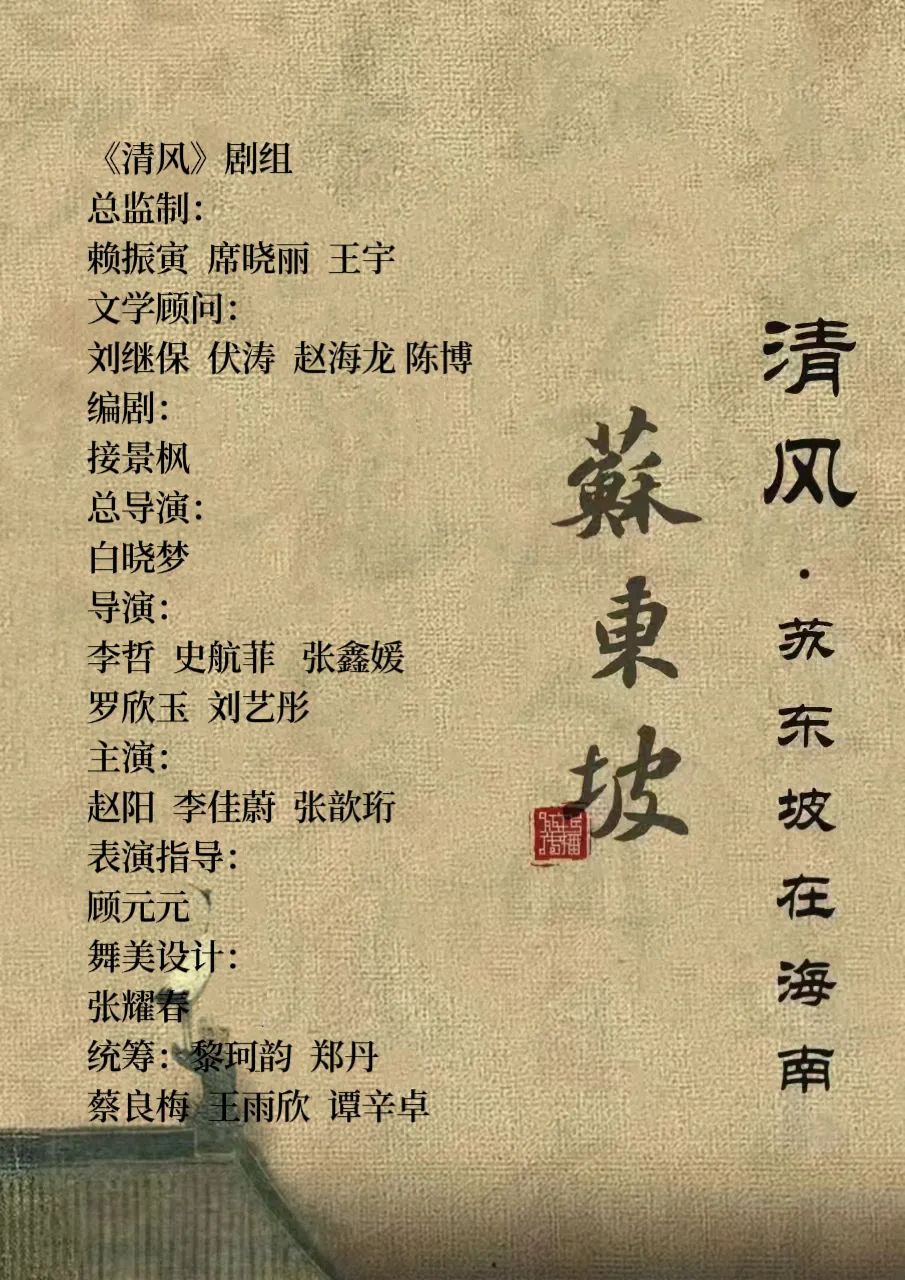 《清风》剧组
总监制：
赖振寅 席晓丽 王宇
文学顾问：
刘继保 伏涛 赵海龙 陈博
编剧：
接景枫
总导演：
白晓梦
导演：
李哲 史航菲 张鑫媛
罗欣玉 刘艺彤
主演：
赵阳 李佳蔚 张歆珩
表演指导：
顾元元
舞美设计：
张耀春
统筹：黎珂韵 郑丹
蔡良梅 王雨欣 谭辛卓
清风·苏东坡在海南
蘇東坡